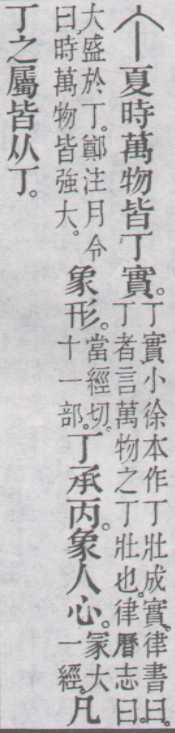 夏時萬物皆丁實。
丁實小徐本作丁壯成實。律書曰。
丁者言萬物之丁壯也。律曆志曰。
大盛於丁。鄭注月令
曰。時萬物皆強大。
象形。
當經切。
十一部。
丁承丙。象人心。
冡大
一經。
凡
丁之屬皆从丁。